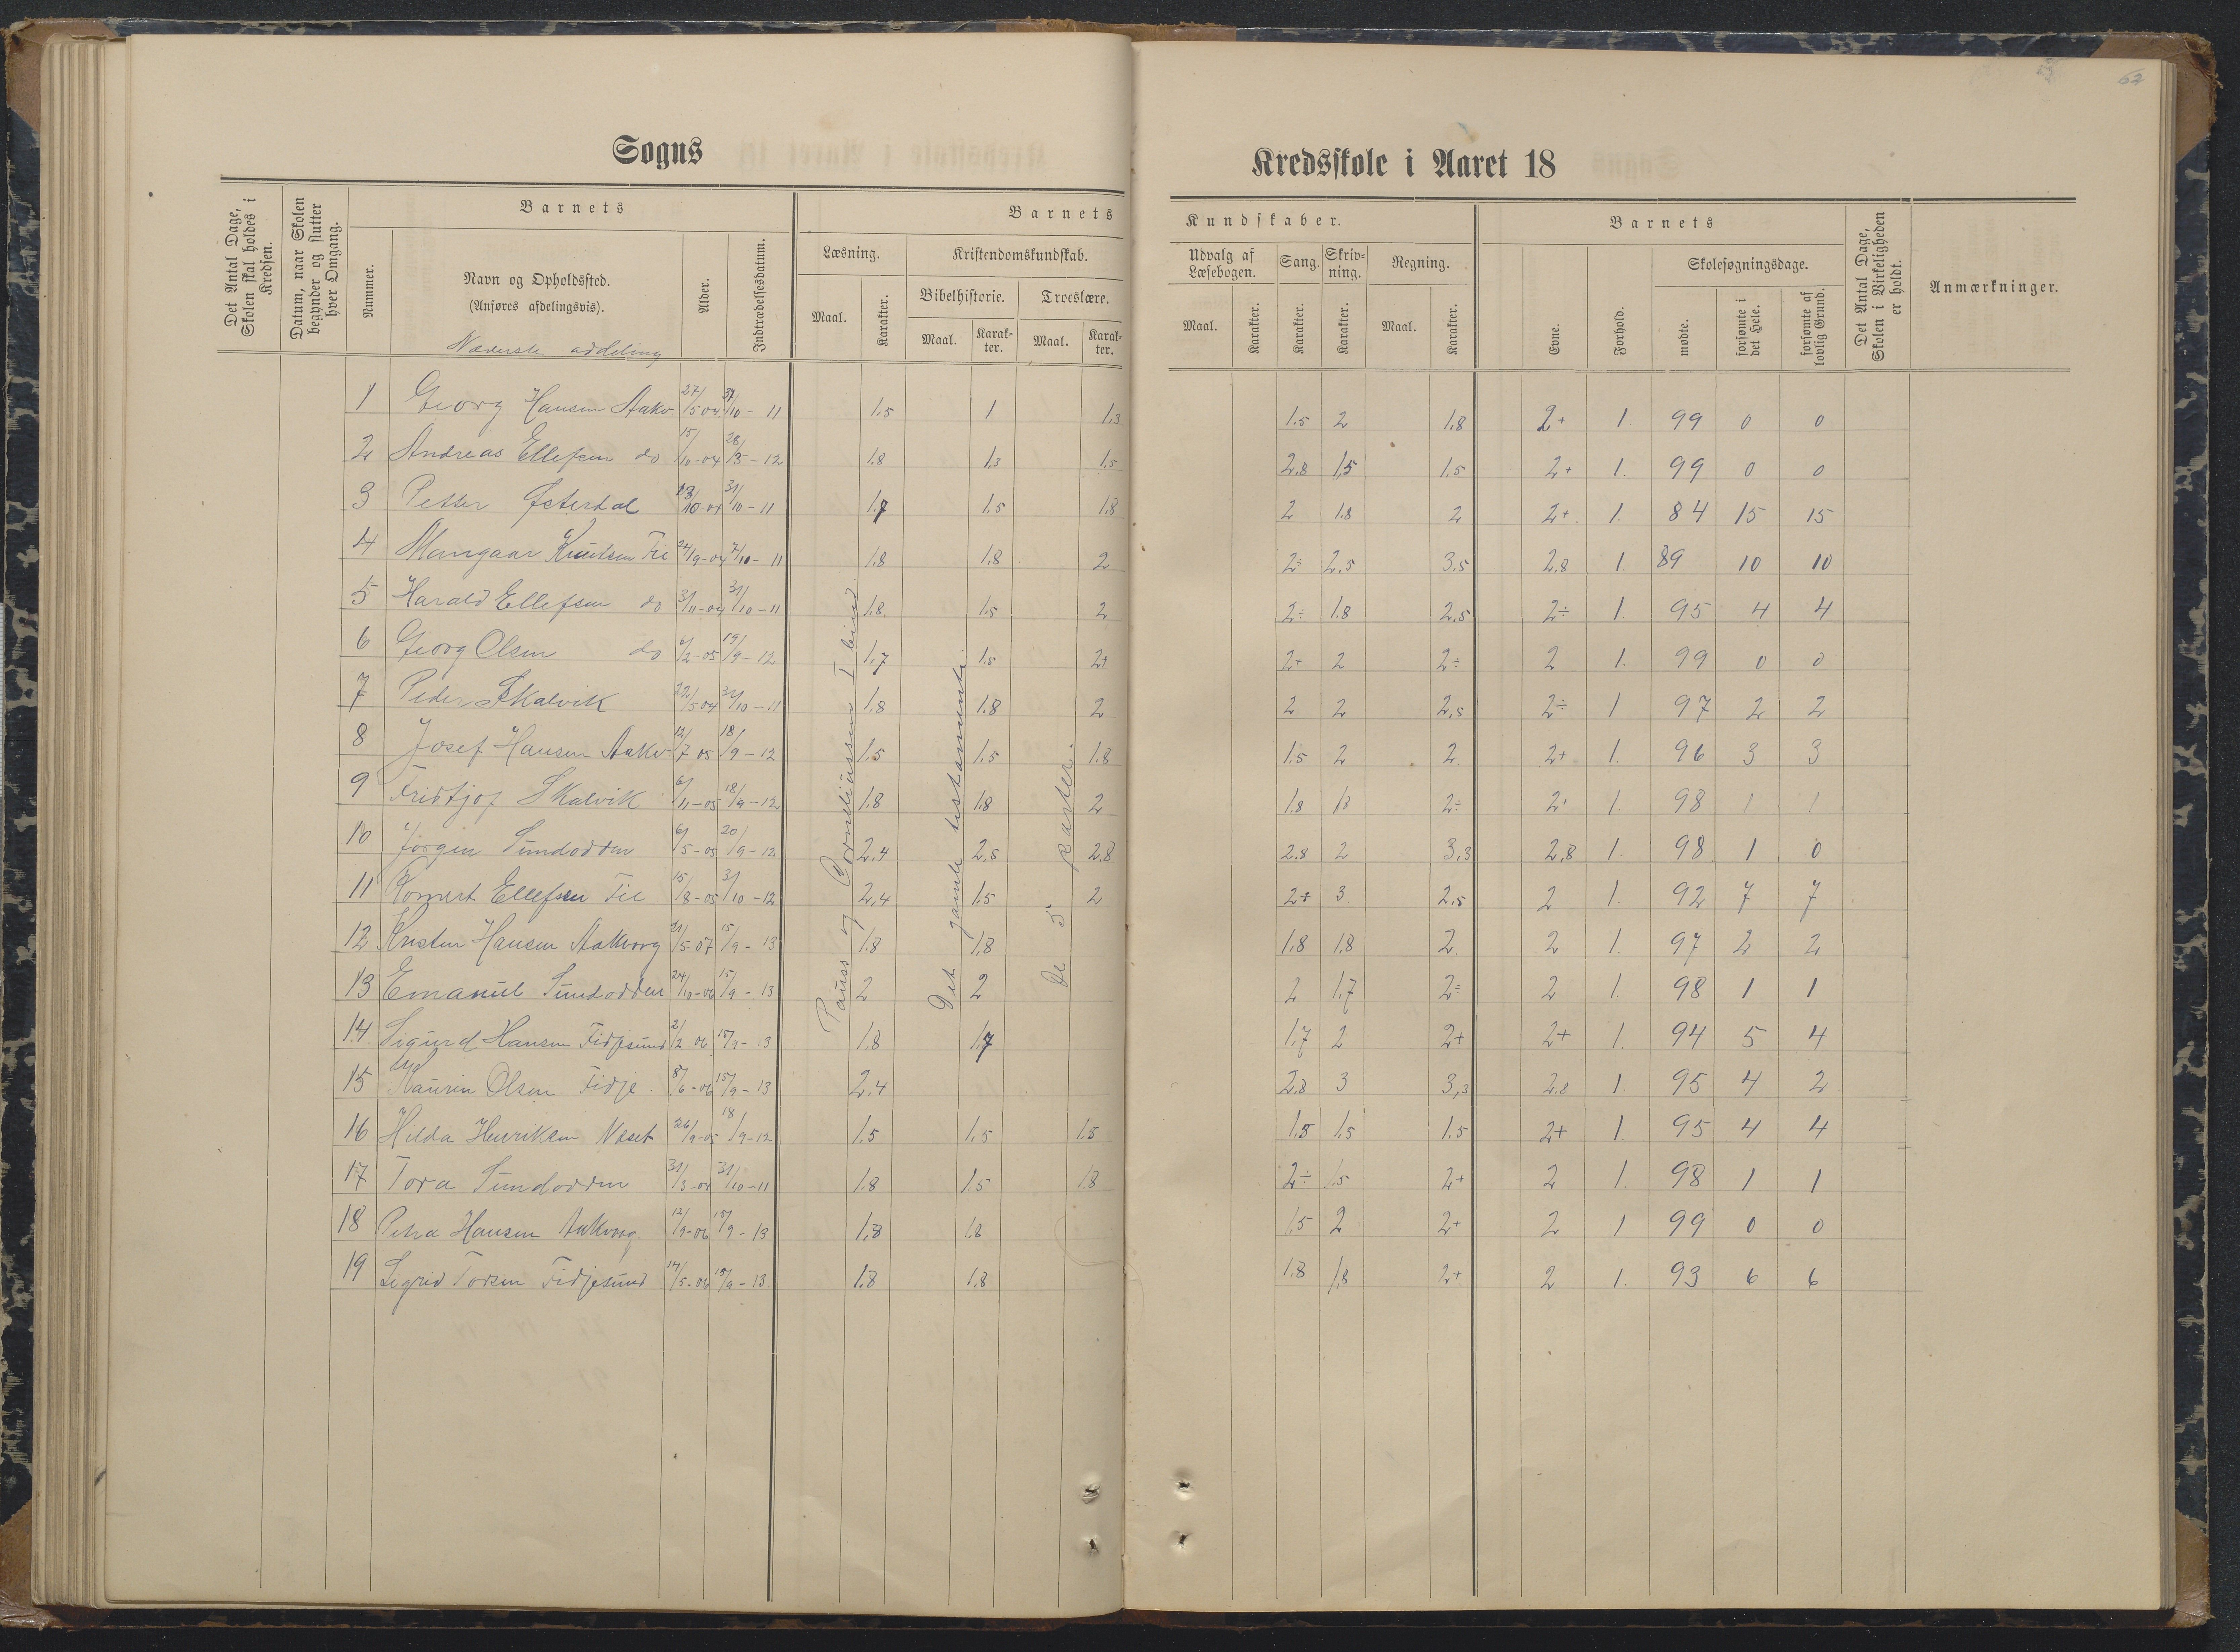 62
Sogns
Kredsskole i Aaret 18
Det Antal Dage, Skolen skal holdes i Kredsen.
Datum, naar Skolen begynder og slutter hver Omgang.
Nummer.
Barnets
Navn og Opholdssted.
(Anføres afdelingsvis).
Nederste
Alder.
Indtrædelsesdatum.
Barnets
Læsning.
Maal.
Karakter.
Kristendomskundskab.
Bibelhistorie.
Maal.
Karakter.
Troeslære.
Maal.
Karakter.
Kundskaber.
Udvalg af Læsebogen.
Maal.
Karakter.
Sang.
Karakter.
Skrivning.
Karakter.
Regning.
Maal.
Karakter.
Barnets
Evne.
Forhold.
Skolesøgningsdage.
mødte.
forsømte i det Hele.
forsømte af lovlig Grund.
Det Antal Dage, Skolen i Virkeligheden er holdt.
Anmærkninger.
1 Georg Hansen Aakv. 27/5 04 31/10-11 1.5 1 1.3 1.5 2 1.8 2+ 1. 99 0 0
2 Andreas Ellefsen do 15/10-04 28/3-12 1.8 1.3 1.5 2.8 1.5 1.5 2+ 1. 99 0 0
3 Petter Østerdal 31/10-11 1.7 1.5 1.8 2 1.8 2 2+ 1. 84 15 15
4 Mangaar Knutsen Fie 24/9-04 7/10-11 1.8 1.8 2 2÷ 2.5 3.5 2.8 1. 89 10 10
5 Harald Ellefsen do 3/11-04 31/10-11 1.8 1.5 2 2÷ 1.8 2.5 2÷ 1. 95 4 4
6 Georg Olsen do 6/2-05 19/9-12 1.7 1.5 2+ 2+ 2 2÷ 2 1. 99 0 0
7 Peder Skalvik 22/5 04 31/10-11 1.8 1.8 2 2 2 2.5 2÷ 1 97 2 2
8 Josef Hansen Aakv. 12/7 05 18/9-12 1.5 1.5 1.8 1.5 2 2 2+ 1. 96 3 3
9 Fridtjof Skalvik 6/11-05 18/9-12 1.8 1.8 2 1.8 1.8 2÷ 2+ 1. 98 1 1
10 Jørgen Sundodden 6/5-05 20/9-12 2.4 2.5 2.8 2.8 2 3.3 2.8 1. 98 1 0
11 Ellefsen Fie 15/8-05 3/10-12 2.4 1.5 2 2+ 3. 2.5 2 1. 92 7 7
12 Kristen Hansen Aakvog 21/5-07 15/9-13 1.8 1.8 1.8 1.8 2. 2 1. 97 2 2
13 Emanuel Sundodden 24/10-06 15/9-13 2 2 2 1.7 2÷ 2 1. 98 1 1
14 Sigurd Hansen Fidjesund 2/2 06 15/9-13 1.8 1.7 1.7 2 2+ 2+ 1. 94 5 4
15 Olsen Fidje 8/6-06 15/9-13 2.4 2.8 3 3,3 2.8 1. 95 4 2
16 Hilda Henriksen Næset 26/9-05 18/9-12 1.5 1.5 1.5 1.5 1.5 1.5 2+ 1. 95 4 4
17 Tora Sundodden 31/3-04 31/10-11 1.8 1.5 1.8 2÷ 1.5 2+ 2 1. 98 1 1
18 Petra Hansen Aakvog 12/9-06 15/9-13 1.8 1.8 1.5 2 2+ 2 1 99 0 0
19 Sigrid Torsen Fidjesund 14/5-06 15/9-13. 1.8 1.8 1.8 1.8 2+ 2 1. 93 6 6
Pauss og Corneliussen I bind
Det gamle testamente.
De 5 parter.